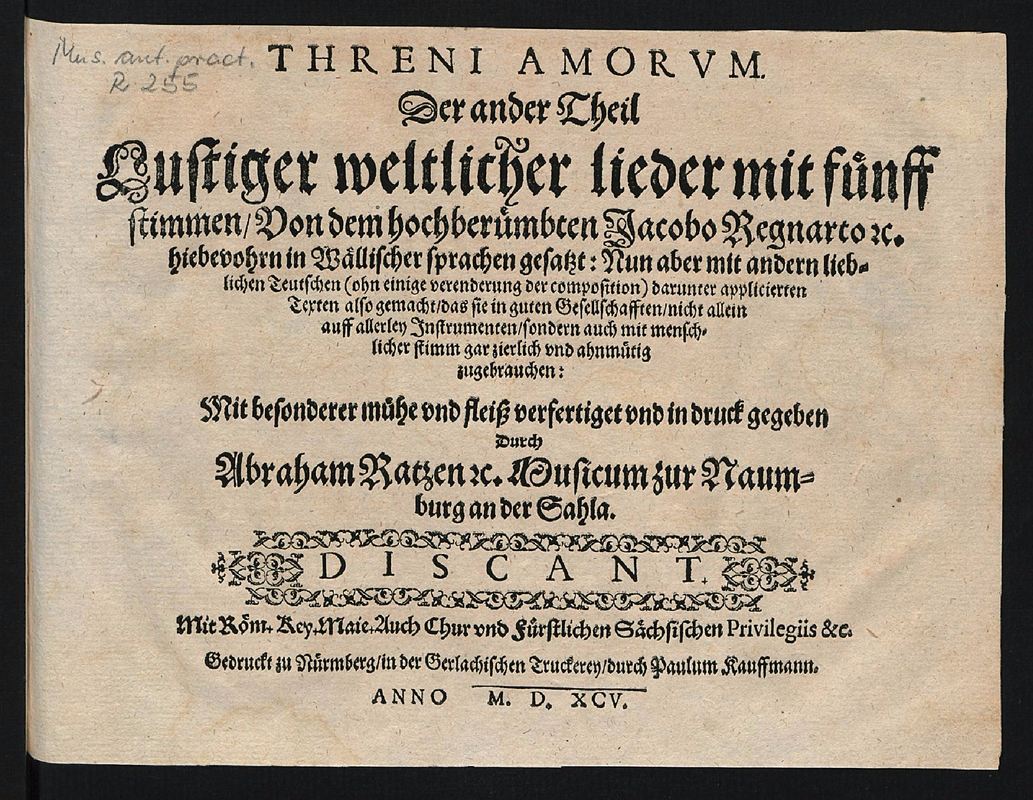 Mus. ant. pract.
R 255
THRENI AMORVM.
Der ander Theil
Lustiger weltlicher lieder mit fünff
stimmen/ Von dem hochberümbten Jacobo Regnarto ꝛc.
hiebevohrn in Wällischer sprachen gesatzt: Nun aber mit andern lieb⸗
lichen Teutschen (ohn einige verenderung der composition) darunter applicierten
Texten also gemacht/das sie in guten Gesellschafften/nicht allein
auff allerley Instrumenten/sondern auch mit mensch⸗
licher stimm gar zierlich vnd ahnmütig
zugebrauchen:
Mit besonderer mühe vnd fleiß verfertiget vnd in druck gegeben
Durch
Abraham Ratzen ꝛc. Musicum zur Naum⸗
burg an der Sahla.
DISCANT.
Mit Röm. Key. Maie. Auch Chur vnd Fürstlichen Sächsischen Privilegiis &c.
Gedruckt zu Nürmberg/in der Gerlachischen Truckerey/durch Paulum Kauffmann.
ANNO M. D. XCV.